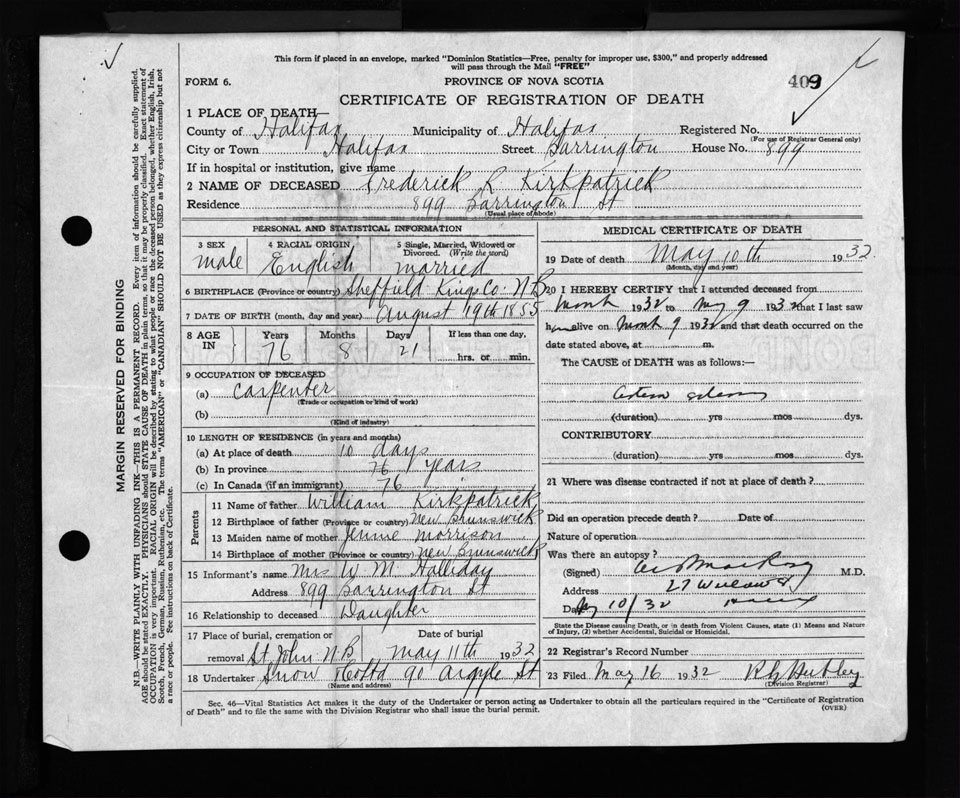 This form if placed in an envelope, marked "Dominion Statistics—Free, penalty for improper use, $300," and properly addressed
will pass through the Mail "FREE"
FORM 6.
PROVINCE OF NOVA SCOTIA
409
CERTIFICATE OF REGISTRATION OF DEATH
1 PLACE OF DEATH—
County of Halifax Municipality of Halifax Registered No.
(For use of Registrar General only)
City or Town Halifax Street Barrington House No. 899
If in hospital or institution, give name
2 NAME OF DECEASED Frederick R Kirkpatrick
Residence 899 Barrington St
(Usual place of abode)
PERSONAL AND STATISTICAL INFORMATION
3 SEX 4 RACIAL ORIGIN 5 Single, Married, Widowed or
Divorced. (Write the word)
male English married
6 BIRTHPLACE (Province or country) Sheffield Kings Co. N B
7 DATE OF BIRTH (month, day and year) August 19th 1855
8 AGE IN Years Months Days If less than one day,
76 8 21 hrs. or min.
9 OCCUPATION OF DECEASED
(a) Carpenter
(Trade or occupation or kind of work)
(b)
(Kind of industry)
10 LENGTH OF RESIDENCE (in years and months)
(a) At place of death 10 days
(b) In province 76 years
(c) In Canada (if an immigrant) 76
Parents
11 Name of father William Kirkpatrick
12 Birthplace of father (Province or country) New Brunswick
13 Maiden name of mother Jennie Morrison
14 Birthplace of mother (Province or country) New Brunswick
15 Informant's name Mrs W. M. Halliday
Address 899 Barrington St
16 Relationship to deceased Daughter
17 Place of burial, cremation or Date of burial
removal St. John N B May 11th 1932
18 Undertaker Snow & Co Ltd 90 Argyle St
(Name and address)
MEDICAL CERTIFICATE OF DEATH
19 Date of death May 10th 1932
(Month, day and year)
20 I HEREBY CERTIFY that I attended deceased from
1932 to May 9 1932 that I last saw
h alive on 9 1932 and that death occurred on the
date stated above, at m.
The CAUSE of DEATH was as follows:—
(duration) yrs mos dys.
CONTRIBUTORY
(duration) yrs mos dys.
21 Where was disease contracted if not at place of death?
Did an operation precede death? Date of
Nature of operation
Was there an autopsy?
(Signed) M.D.
Address 27 Willow St
Date May 10/32
State the Disease causing Death, or in death from Violent Causes, state (1) Means and Nature
of Injury, (2) whether Accidental, Suicidal or Homicidal.
22 Registrar's Record Number
23 Filed May 16 1932
(Division Registrar)
Sec. 46—Vital Statistics Act makes it the duty of the Undertaker or person acting as Undertaker to obtain all the particulars required in the "Certificate of Registration
of Death" and to file the same with the Division Registrar who shall issue the burial permit.
(OVER)
MARGIN RESERVED FOR BINDING
N.B.—WRITE PLAINLY WITH UNFADING INK—THIS IS A PERMANENT RECORD. Every item of information should be carefully supplied.
AGE should be stated EXACTLY. PHYSICIANS should STATE CAUSE OF DEATH in plain terms, so that it may be properly classified. Exact statement of
OCCUPATION is very important. RACIAL ORIGIN will be described by stating to what people or race the deceased person belonged, whether English, Irish,
Scotch, French, German, Russian, Ruthenian, etc. The terms "AMERICAN" or "CANADIAN" SHOULD NOT BE USED as they express citizenship but not
a race or people. See instructions on back of Certificate.